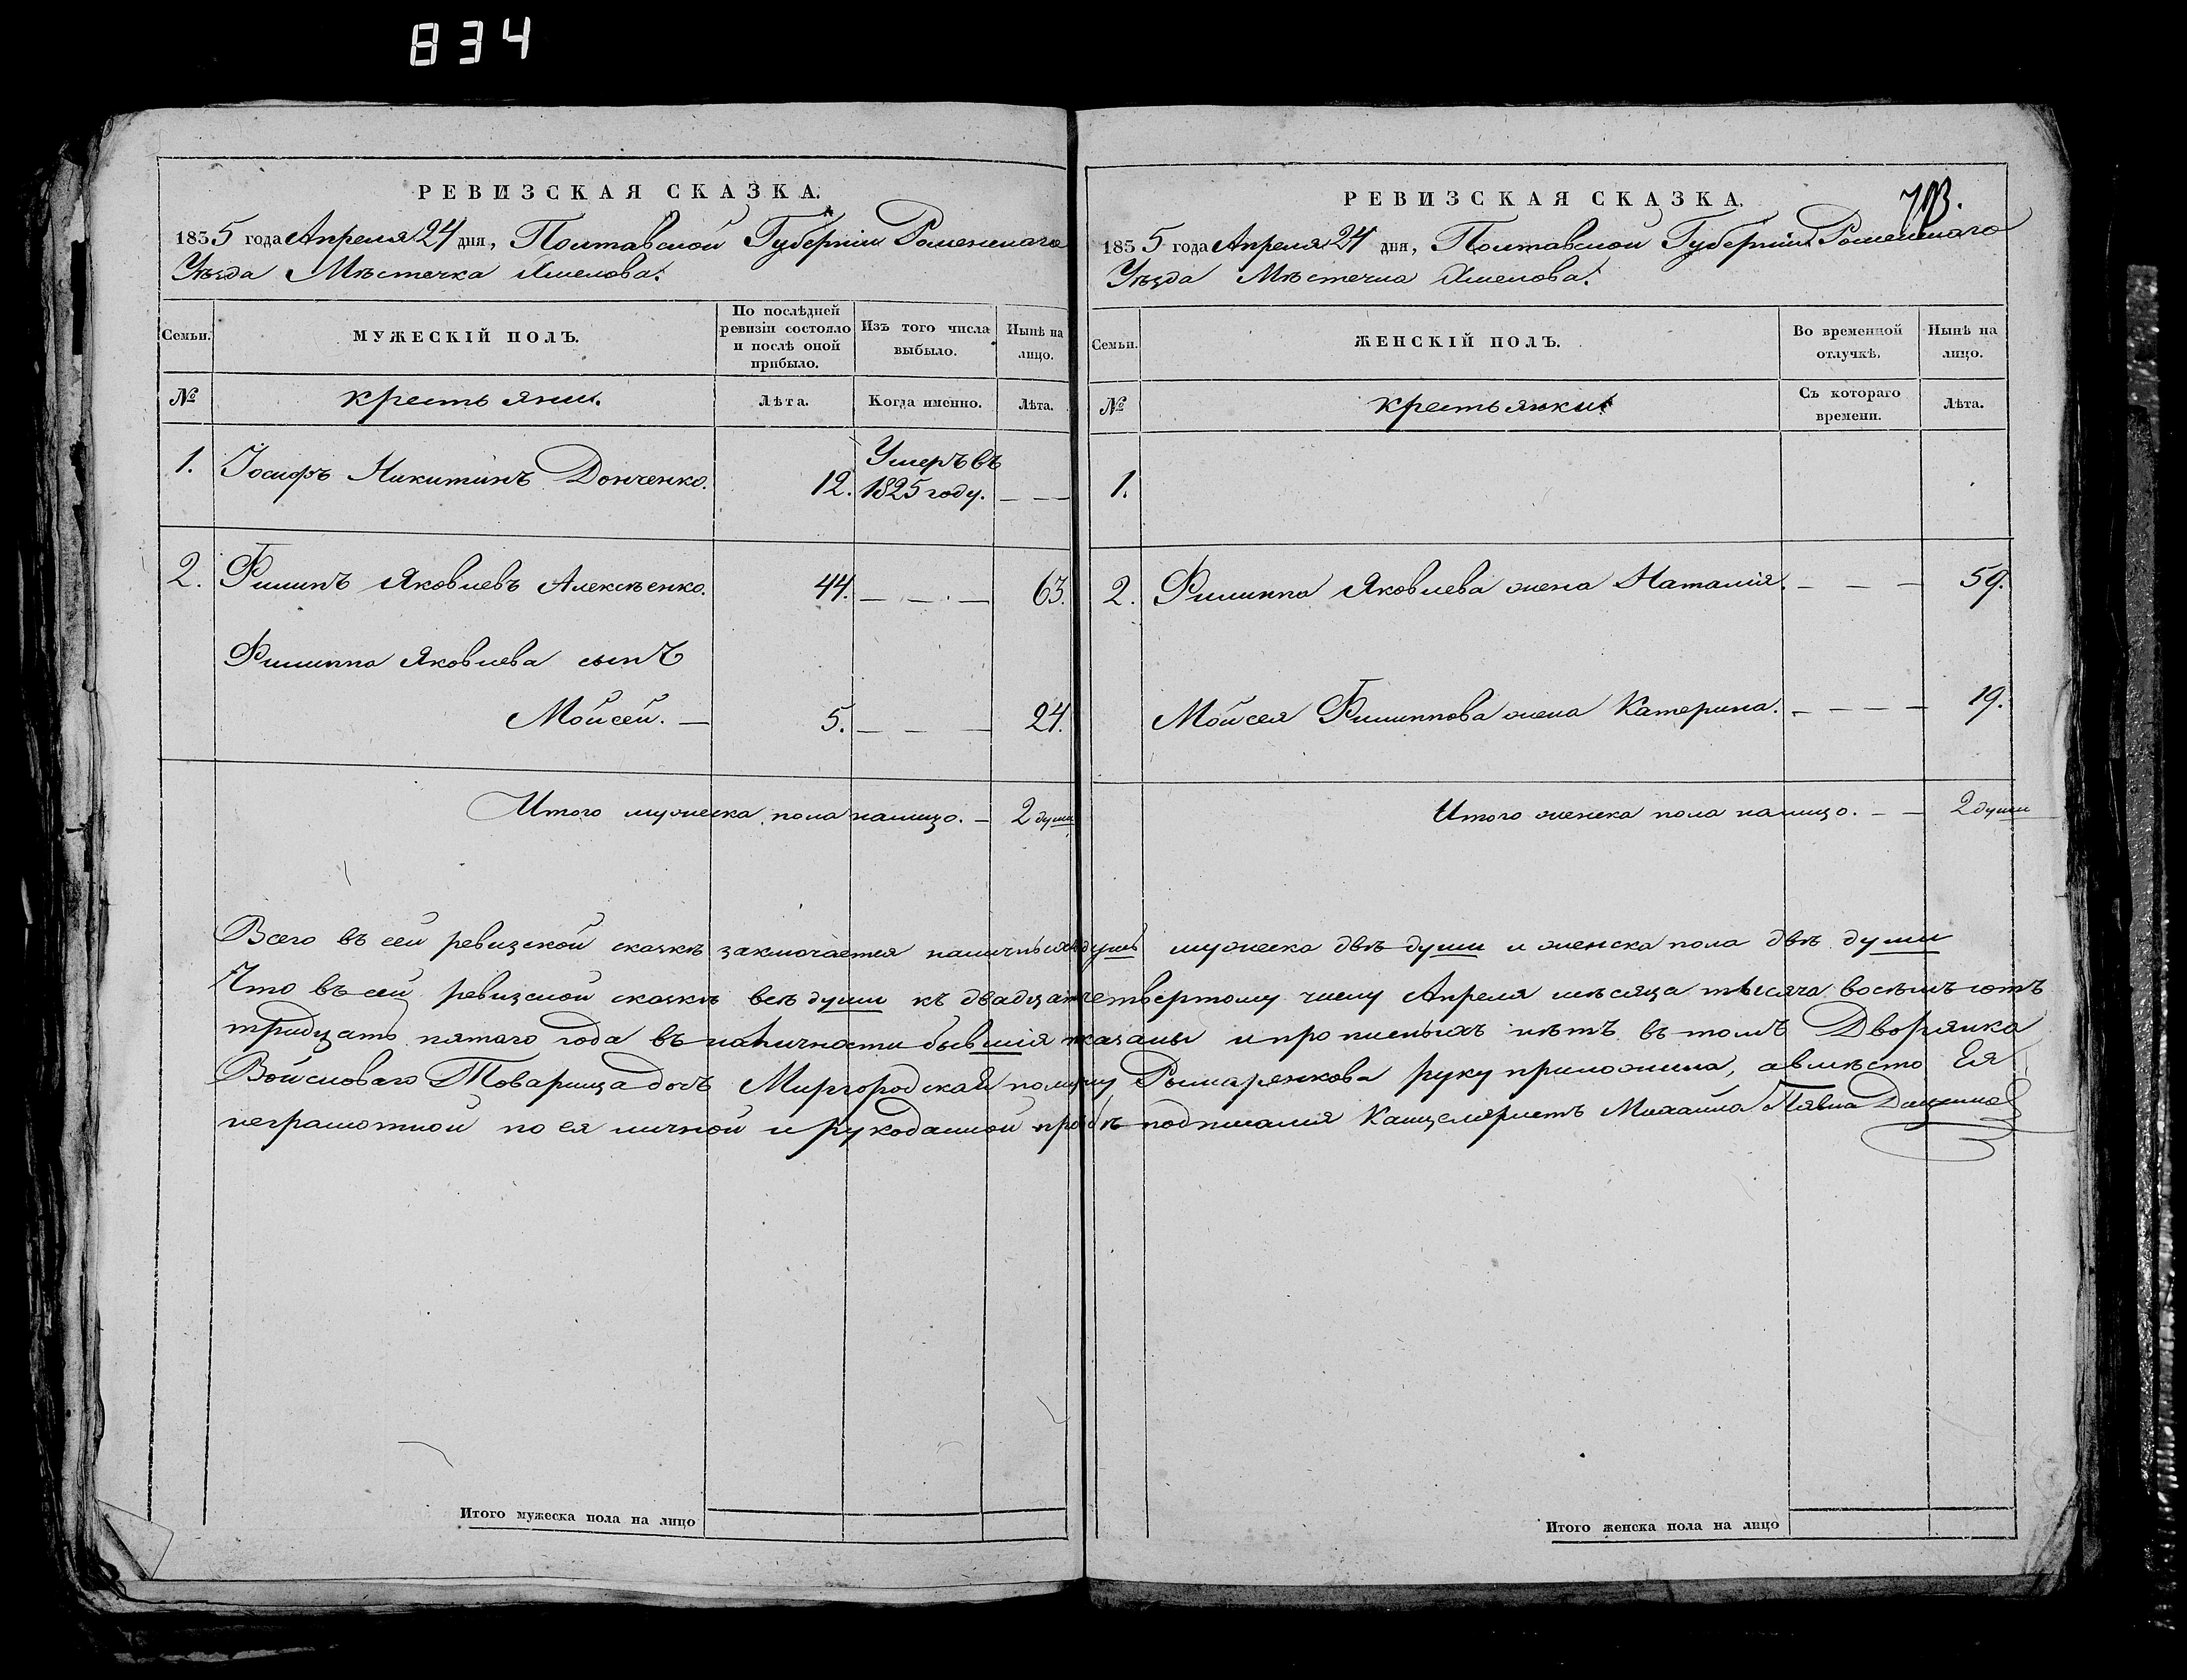 834
РЕВИЗСКАЯ СКАЗКА.
1835 года Апреля 24 дня, Полтавской Губерніи Роменскаго
Уѣзда Мѣстечка Хмелова:
Семьи.
МУЖЕСКІЙ ПОЛЪ.
По послѣдней ревизіи состояло и послѣ оной прибыло.
Изъ того числа выбыло.
Нынѣ на лицо.
№
крестьяни.
Лѣта.
Когда именно.
Лѣта.
1. Іосифъ Никитинъ Донченко. 12. Умеръ въ 1825 году. — —
2. Филипъ Яковлевъ Алексѣенко. 44. — — — 63.
Филиппа Яковлева сынъ
Мойсей. — 5. — — — 24.
Итого мужеска пола налицо. — 2 души
РЕВИЗСКАЯ СКАЗКА.
1835 года Апреля 24 дня, Полтавской Губерніи Роменскаго
Уѣзда Мѣстечка Хмелова:
Семьи.
ЖЕНСКІЙ ПОЛЪ.
Во временной отлучкѣ.
Нынѣ на лицо.
№
крестьянки
Съ котораго времени.
Лѣта.
1.
2. Филиппа Яковлева жена Наталія. — — — 59.
Мойсея Филиппова жена Катерина. — — — — 19.
Итого женска пола налицо. — — 2 души
Всего въ сей ревизской сказкѣ заключается наличныхъ душъ мужеска двѣ души и женска пола двѣ души
Что въ сей ревизской сказкѣ всѣ души къ двадцать четвертому числу Апреля мѣсяца тысяча восѣмъ сотъ
тридцать пятаго года въ наличности бывшія показаны и прописныхъ нѣтъ въ томъ Дворянка
Войсковаго Товарища дочь Миргородская помѣщ Рымаренкова руку приложила, а вмѣсто Ея
неграмотной по ея личной и рукоданной прозбѣ подписался Канцеляристъ Михайла
Итого мужеска пола на лицо
Итого женска пола на лицо